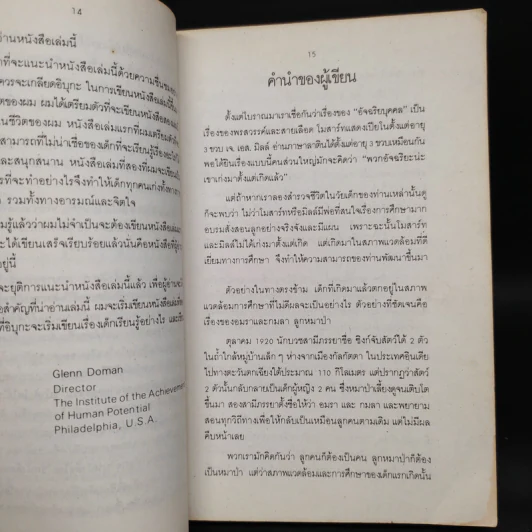 14
อ่านหนังสือเล่มนี้
าที่จะแนะนำหนังสือเล่มนี้ด้วยความชื่นชม
ควรจะเกลียดอิบุกะ ในการเขียนหนังสือเล่มนี้
ตของผม ผมได้เตรียมตัวที่จะเขียนหนังสือสอง
ในชีวิตของผม หนังสือเล่มแรกที่ผม
สามารถที่ไม่น่าเชื่อของเด็กที่จะเรียนรู้
และสนุกสนาน หนังสือเล่มที่สองที่ผมจะเขียน
รที่จะทำอย่างไรจึงทำให้เด็กทุกคนเก่งทั้งทาง
รวมทั้งทางอารมณ์และจิตใจ
มรู้แล้วว่าผมไม่จำเป็นจะต้องเขียนหนังสือ
ะได้เขียนเสร็จเรียบร้อยแล้วนั่นคือหนังสือที่
อยู่นี้
จะยุติการแนะนำหนังสือเล่มนี้แล้ว เพื่อผู้อ่าน
อสำคัญที่น่าอ่านเล่มนี้ ผมจะเริ่มเขียนหนังสือ
ที่อิบุกะจะเริ่มเขียนเรื่องเด็กเรียนรู้อย่างไร และ
Glenn Doman
Director
The Institute of the Achievem
of Human Potential
Philadelphia, U.S.A.
15
คำนำของผู้เขียน
ตั้งแต่โบราณมาเราเชื่อกันว่าเรื่องของ "อัจฉริยบุคคล" เป็น
เรื่องของพรสวรรค์และสายเลือด โมสาร์ทแสดงเปียโนตั้งแต่อายุ
3 ขวบ เจ. เอส. มิลล์ อ่านภาษาลาตินได้ตั้งแต่อายุ 3 ขวบเหมือนกัน
พอได้ยินเรื่องแบบนี้คนส่วนใหญ่มักจะคิดว่า "พวกอัจฉริยะน่ะ
เขาเก่งมาตั้งแต่เกิดแล้ว"
แต่ถ้าหากเราลองสำรวจชีวิตในวัยเด็กของท่านเหล่านั้นดู
ก็จะพบว่า ไม่ว่าโมสาร์ทหรือมิลล์มีพ่อที่สนใจเรื่องการศึกษามาก
อบรมสั่งสอนลูกอย่างจริงจังและมีแผน เพราะฉะนั้นโมสาร์ท
และมิลล์ไม่ได้เก่งมาตั้งแต่เกิด แต่เกิดมาในสภาพแวดล้อมที่ดี
เยี่ยมทางการศึกษา จึงทำให้ความสามารถของท่านพัฒนาขึ้นมา
ตัวอย่างในทางตรงข้าม เด็กที่เกิดมาแล้วตกอยู่ในสภาพ
แวดล้อมการศึกษาที่ไม่ดีผลจะเป็นอย่างไร ตัวอย่างที่ชัดเจนคือ
เรื่องของอมราและกมลา ลูกหมาป่า
ตุลาคม 1920 นักบวชสามีภรรยาชื่อ ซิงก์จับสัตว์ได้ 2 ตัว
ในถ้ำใกล้หมู่บ้านเล็ก ๆ ห่างจากเมืองกัลกัตตา ในประเทศอินเดีย
ไปทางตะวันตกเฉียงใต้ประมาณ 110 กิโลเมตร แต่ปรากฏว่าสัตว์
2 ตัวนั้นกลับกลายเป็นเด็กผู้หญิง 2 คน ซึ่งหมาป่าเลี้ยงดูจนเติบโต
ขึ้นมา สองสามีภรรยาตั้งชื่อให้ว่า อมรา และ กมลา และพยายาม
สอนทุกวิถีทางเพื่อให้กลับเป็นเหมือนลูกคนตามเดิม แต่ไม่มีผล
คืบหน้าเลย
พวกเรามักคิดกันว่า ลูกคนก็ต้องเป็นคน ลูกหมาป่าก็ต้อง
เป็นหมาป่า แต่ว่าสภาพแวดล้อมและการศึกษาของเด็กแรกเกิดนั้น